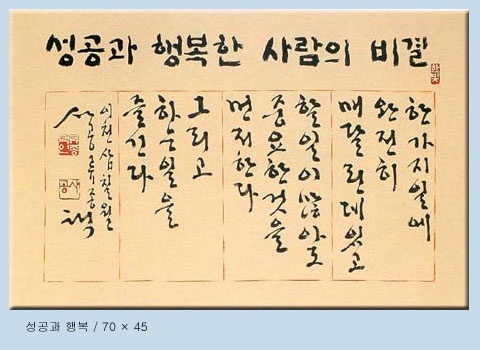 성공과 행복한 사람의 비결
한 가지 일에
완전히
매달린데 있고
할 일이 많아도
중요한 것을
먼저 한다
그리고
하는 일을
즐긴다
이천삼 칠월
성공과 행복 / 70 × 45